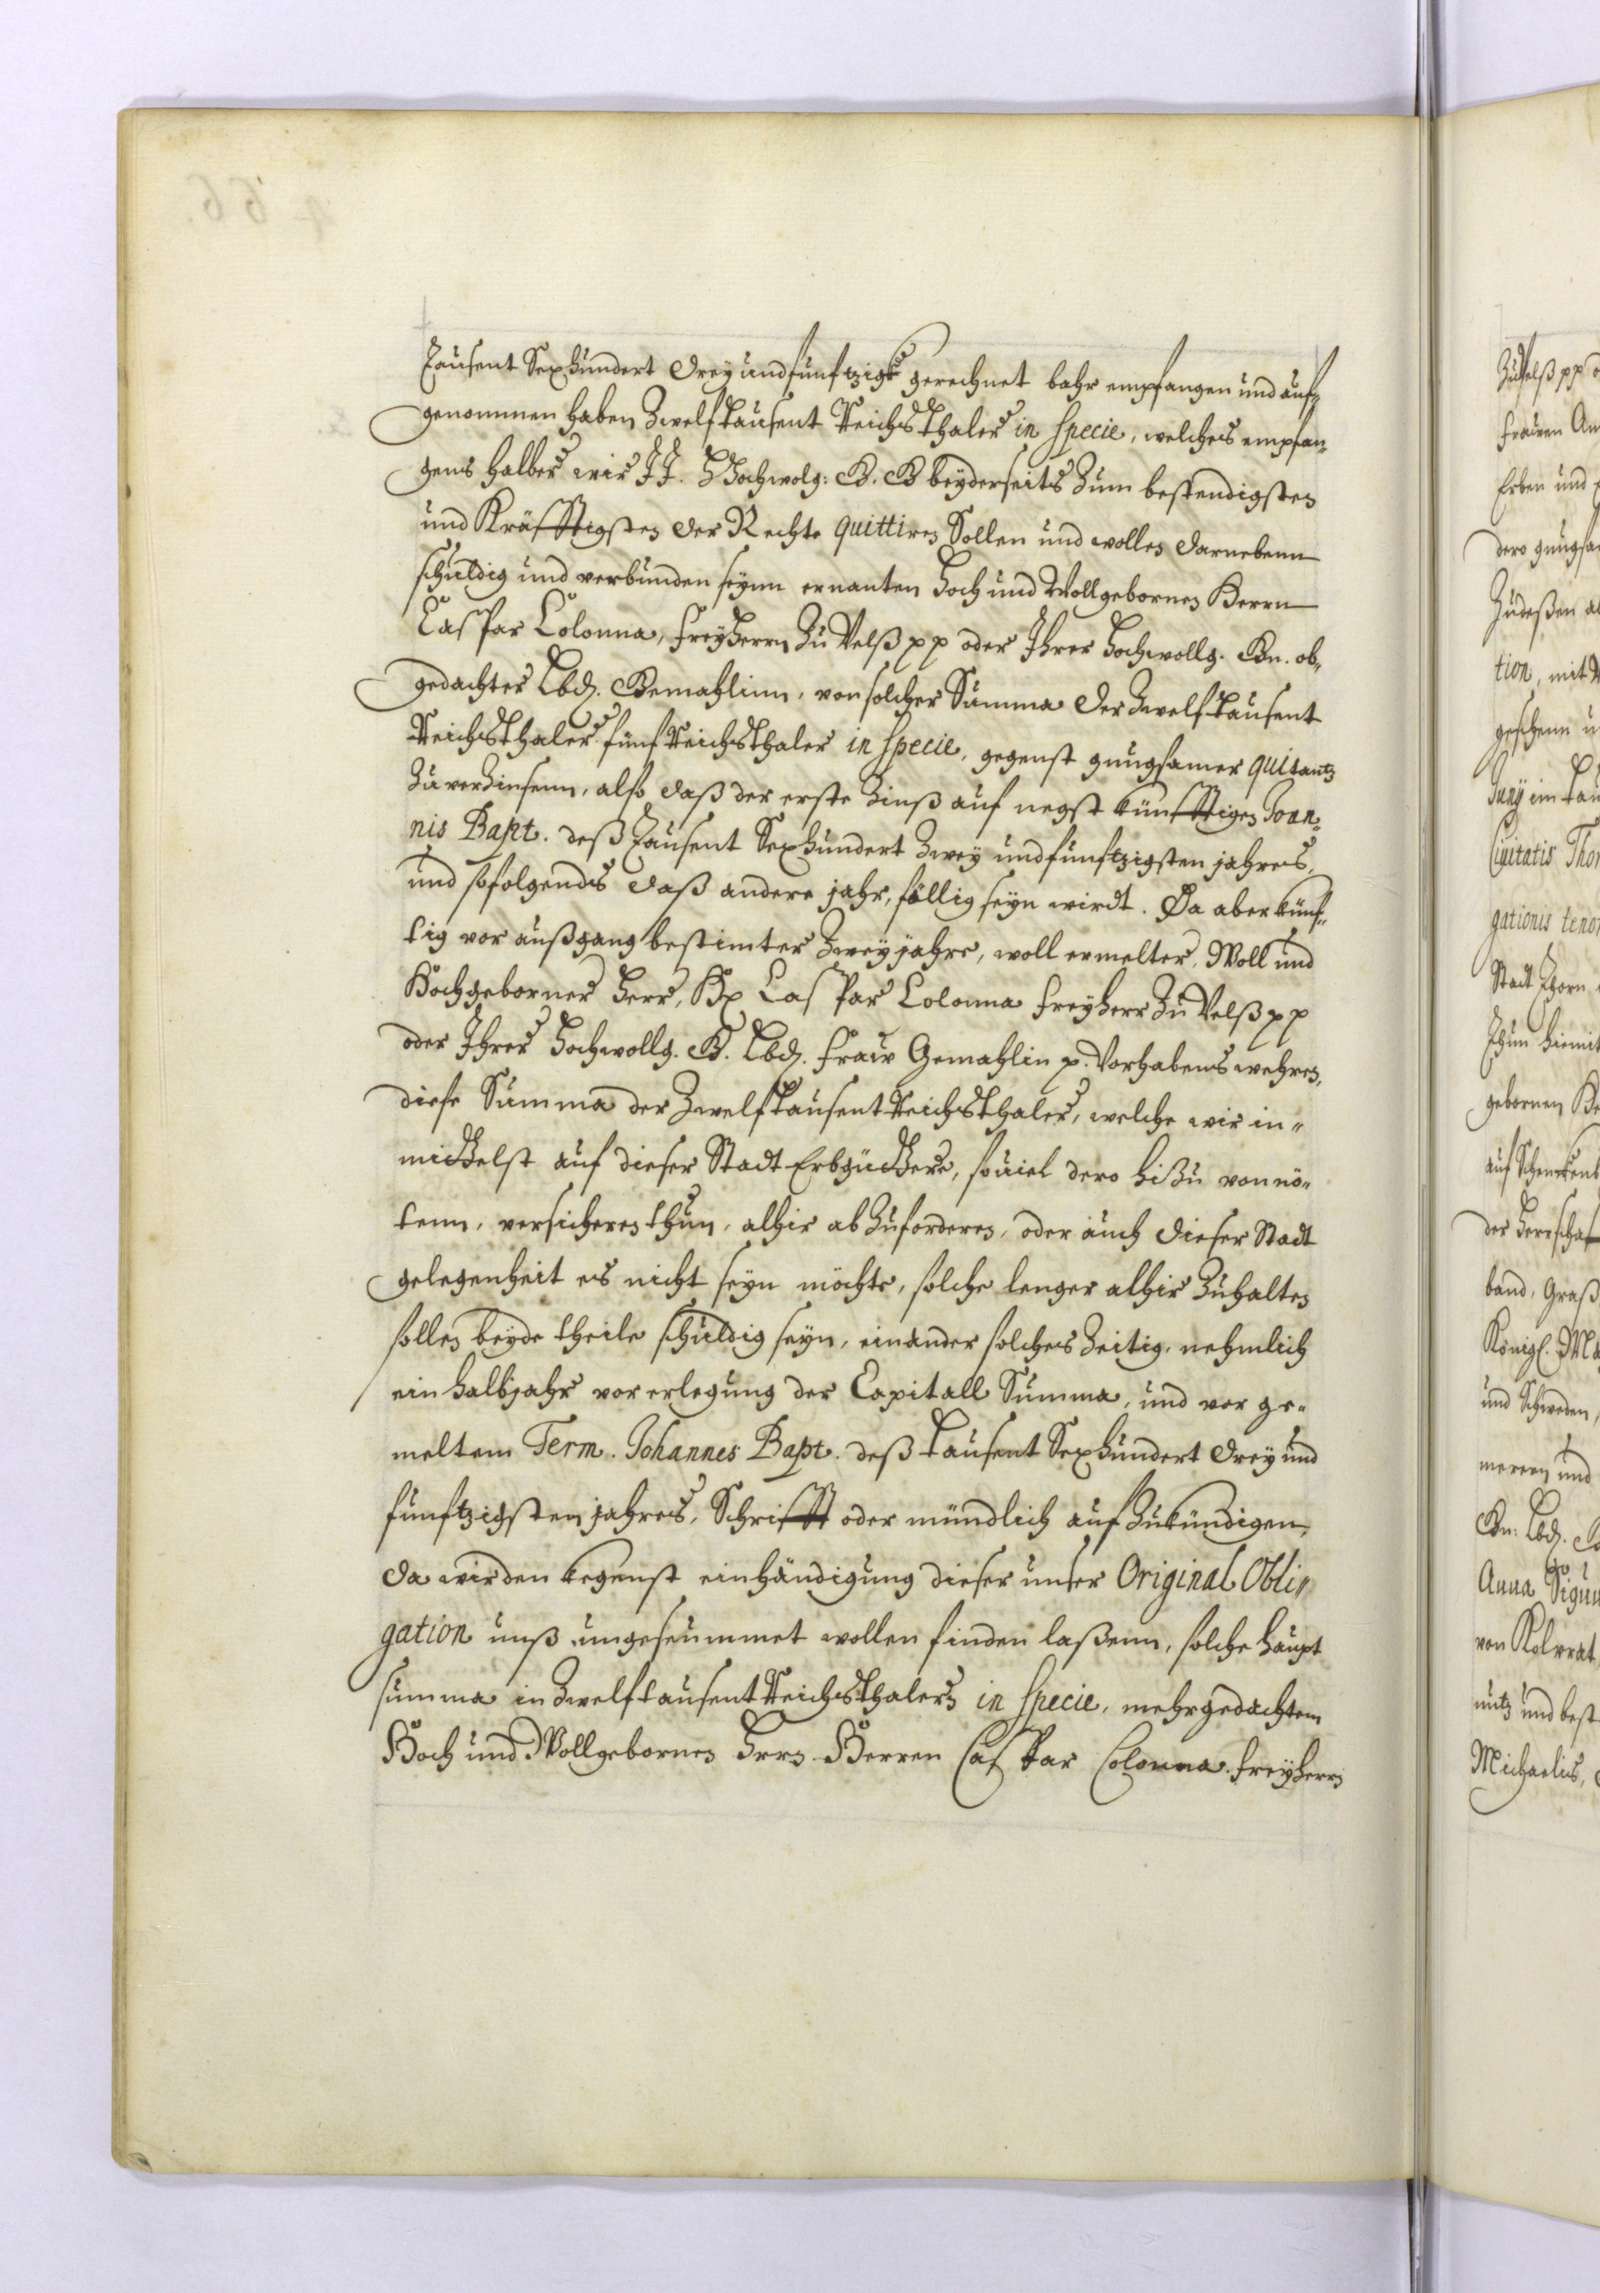 Tausent Sexhundert Dreÿ undfunftzigk gerechnet bahr empfangen und auf-
genommen haben Zwelftausent Reichsthaler in specie, welches empfan-
gens halber wir JJ. Hochwolg: G. G beÿderseits Zum bestendigsten
und Kräfftigsten der Rechte quittiren Sollen und wollen darnebenn
schuldig und verbunden seÿnn ernanten Hoch und Wollgebornen Herrn
Caspar Colonna, freÿherrn Zu Velß pp oder Ihrer Hochwollg. Gn. ob-
gedachter Lbd. Gemahlinn, von solcher Summa der Zwelftausent
Reichsthaler fünf Reichsthaler in specie, gegenst gnugsamer quitantz
Zu verzinsenn, also daß der erste Zinß auf negst künfftigen Joan-
nis Bapt. deß Tausent Sexhundert Zweÿ undfunftzigsten jahres,
und so folgends daß andere jahr, fällig seÿn wirdt. Da aber künf-
tig vor außgang bestimter Zweÿ jahre, woll ermelter, Woll und
Hochgeborner Herr, Hr Caspar Colonna freÿherr Zu Velß pp
oder Ihrer Hochwollg. G. Lbd. fraw Gemahlin p. Vorhabens wehren,
diese Summa der Zwelftausent Reichsthaler, welche wir in-
mittelst auf dieser Stadt Erbgüttere, souiel dero hiZu von nö-
tenn, versicheren thun, alhir abZuforderen, oder auch dieser Stadt
gelegenheit es nicht seÿn möchte, solche lenger alhir Zuhalten
sollen beÿde theile schuldig seÿn, einander solches Zeitig, nehmlich
ein halbjahr vor erlegung der Capitall Summa, und vor ge-
meltem Term. Johannes Bapt. deß tausent Sexhundert dreÿ und
funftzigsten jahres, Schrifft oder mündlich aufZukündigen,
da wir den kegenst einhändigung dieser unser Original Obli-
gation unß ungeseummet wollen finden laßenn, solche haupt
summa in Zwelftausent Reichsthalern in specie, mehrgedachtem
Hoch und Wollgebornen Hrrn Herren Caspar Colonna freÿherrn
frawen
Erben und
dero gnugsa
Zudeßen al
tion, mit
geschenn
Junÿ im tau
Ciuitatis Tho
gationis teno
Stadt Thorn
Thun hiemit
gebornen
der herrschaf
band, Graß
Königl. Ma
und Schweden,
Gn: Lbd.
Anna
von Kolvrat
nutz und best
Michaelis,